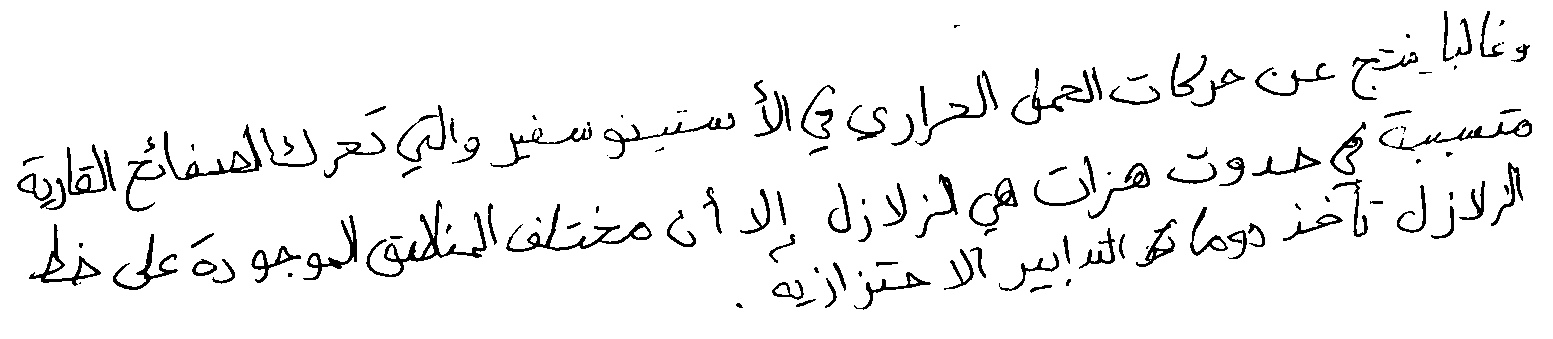 وغالبا ينتج عن حركات الحمل الحراري في الأستينوسفير والتي تحرك الصفائح القارية
متسببة في حدوث هزات هي الزلازل إلا أن مختلف المناطق الموجودة على خط
الزلازل تأخذ دوما التدابير الاحترازيه .